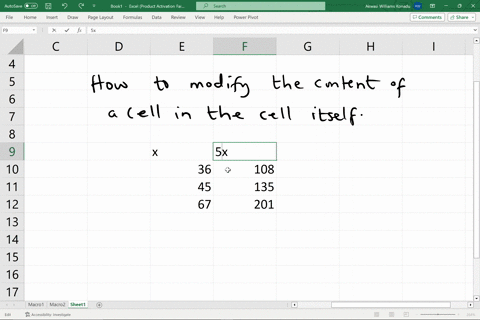 AutoSave Off Book1 - Excel (Product Activation Fa... Search Akwasi Williams
File Home Insert Draw Page Layout Formulas Data Review View Help Power Pivot Comments Share
F9 fx 5x
C D E F G H I
4
5 How to modify the content of
6
7 a cell in the cell itself.
8
9 x 5x
10 36 108
11 45 135
12 67 201
13
14
15
16
17
Macro1 Macro2 Sheet1
Edit Accessibility: Investigate